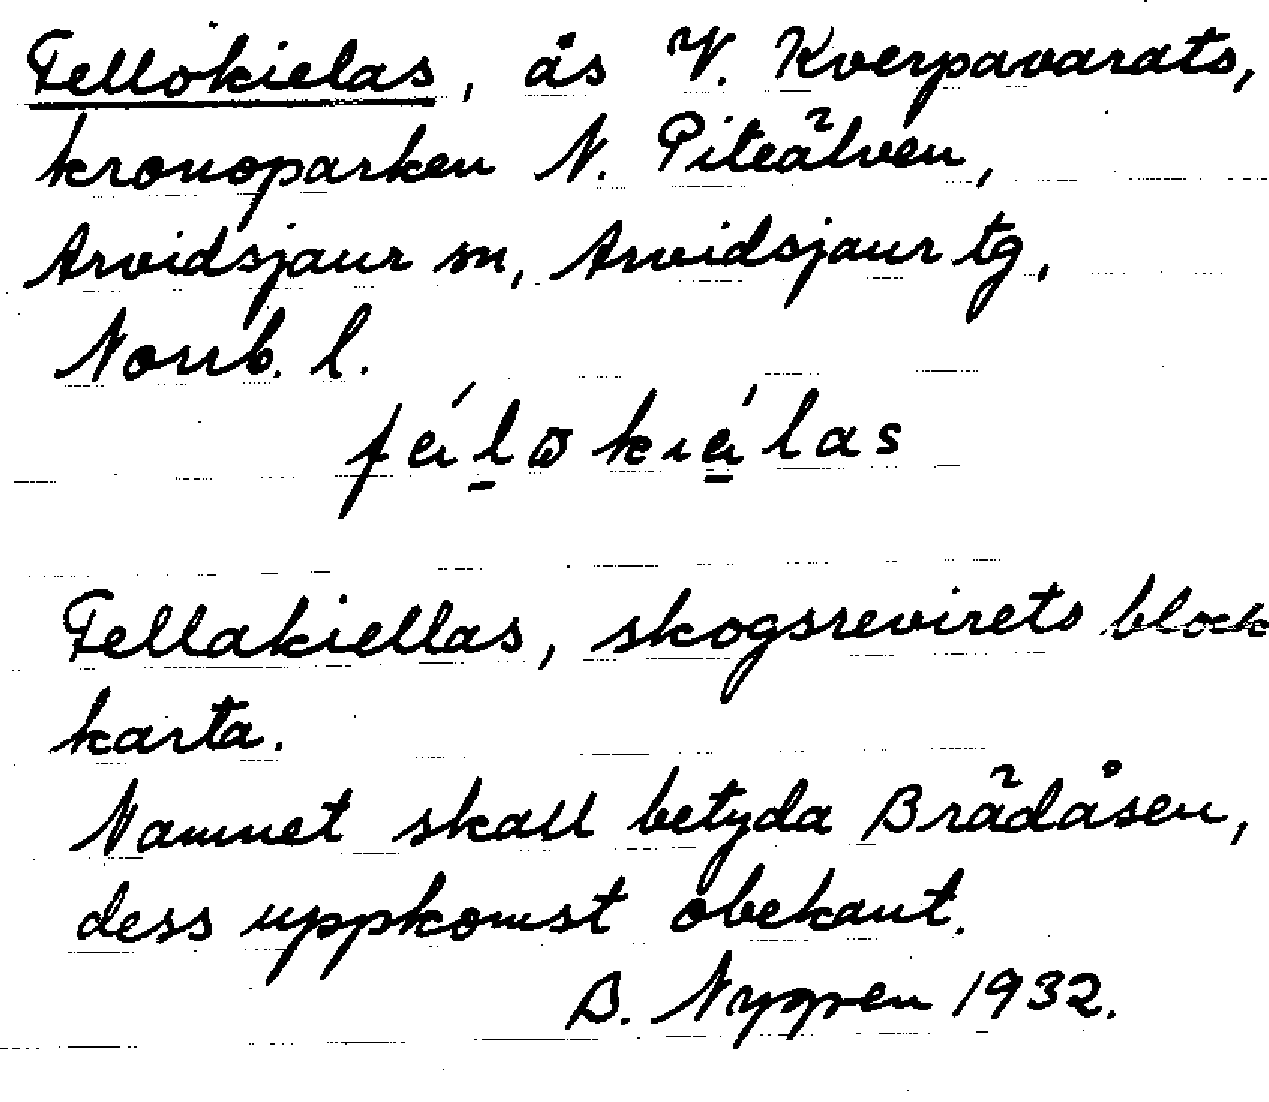 Fellokielas, ås V. Kverpavarats,
kronoparken N. Piteälven,
Arvidsjaur sn, Arvidsjaur tg,
Norrb. l.
Fellakiellas, skogsrevirets block
karta.
Namnet skall betyda Brädåsen,
dess uppkomst obekant.
B. Nygren 1932.